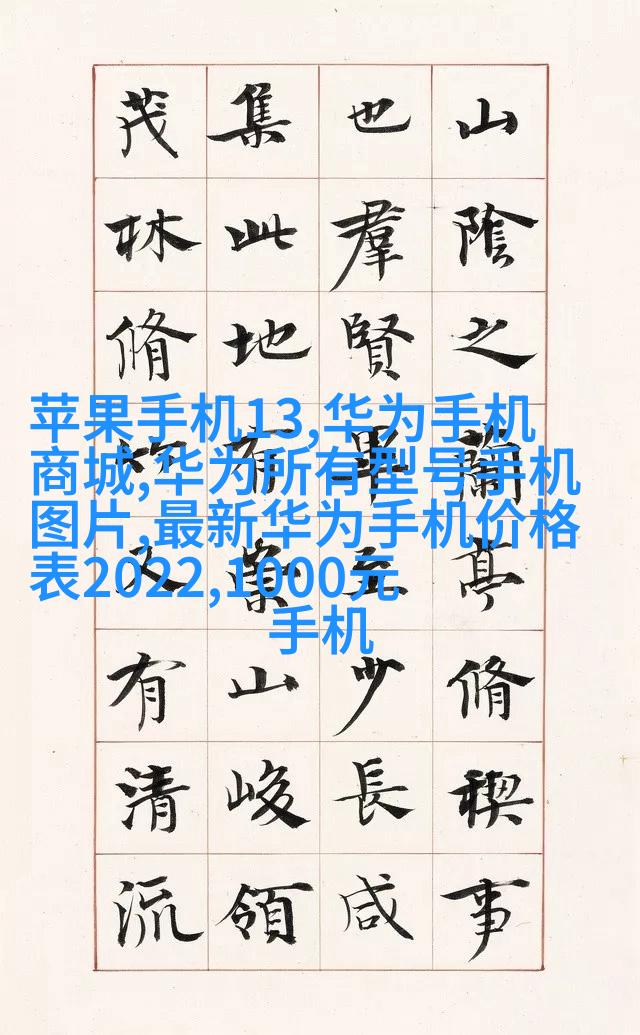 山陰之蘭亭脩稧事
也羣賢畢至少長咸
集此地有崇山峻領
茂林脩又有清流
苹果手机13,华为手机
商城,华为所有型号手机
图片,最新华为手机价格
表2022,1000元
手机